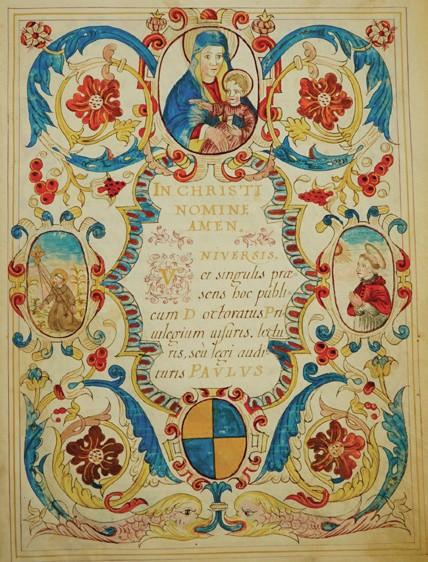 IN CHRISTI
NOMINE
AMEN.
VNIVERSIS,
et singulis præ
sens hoc publi
cum Doctoratus Pri
uilegium uisuris, lectu
ris, seù legi audi
turis PAVLVS